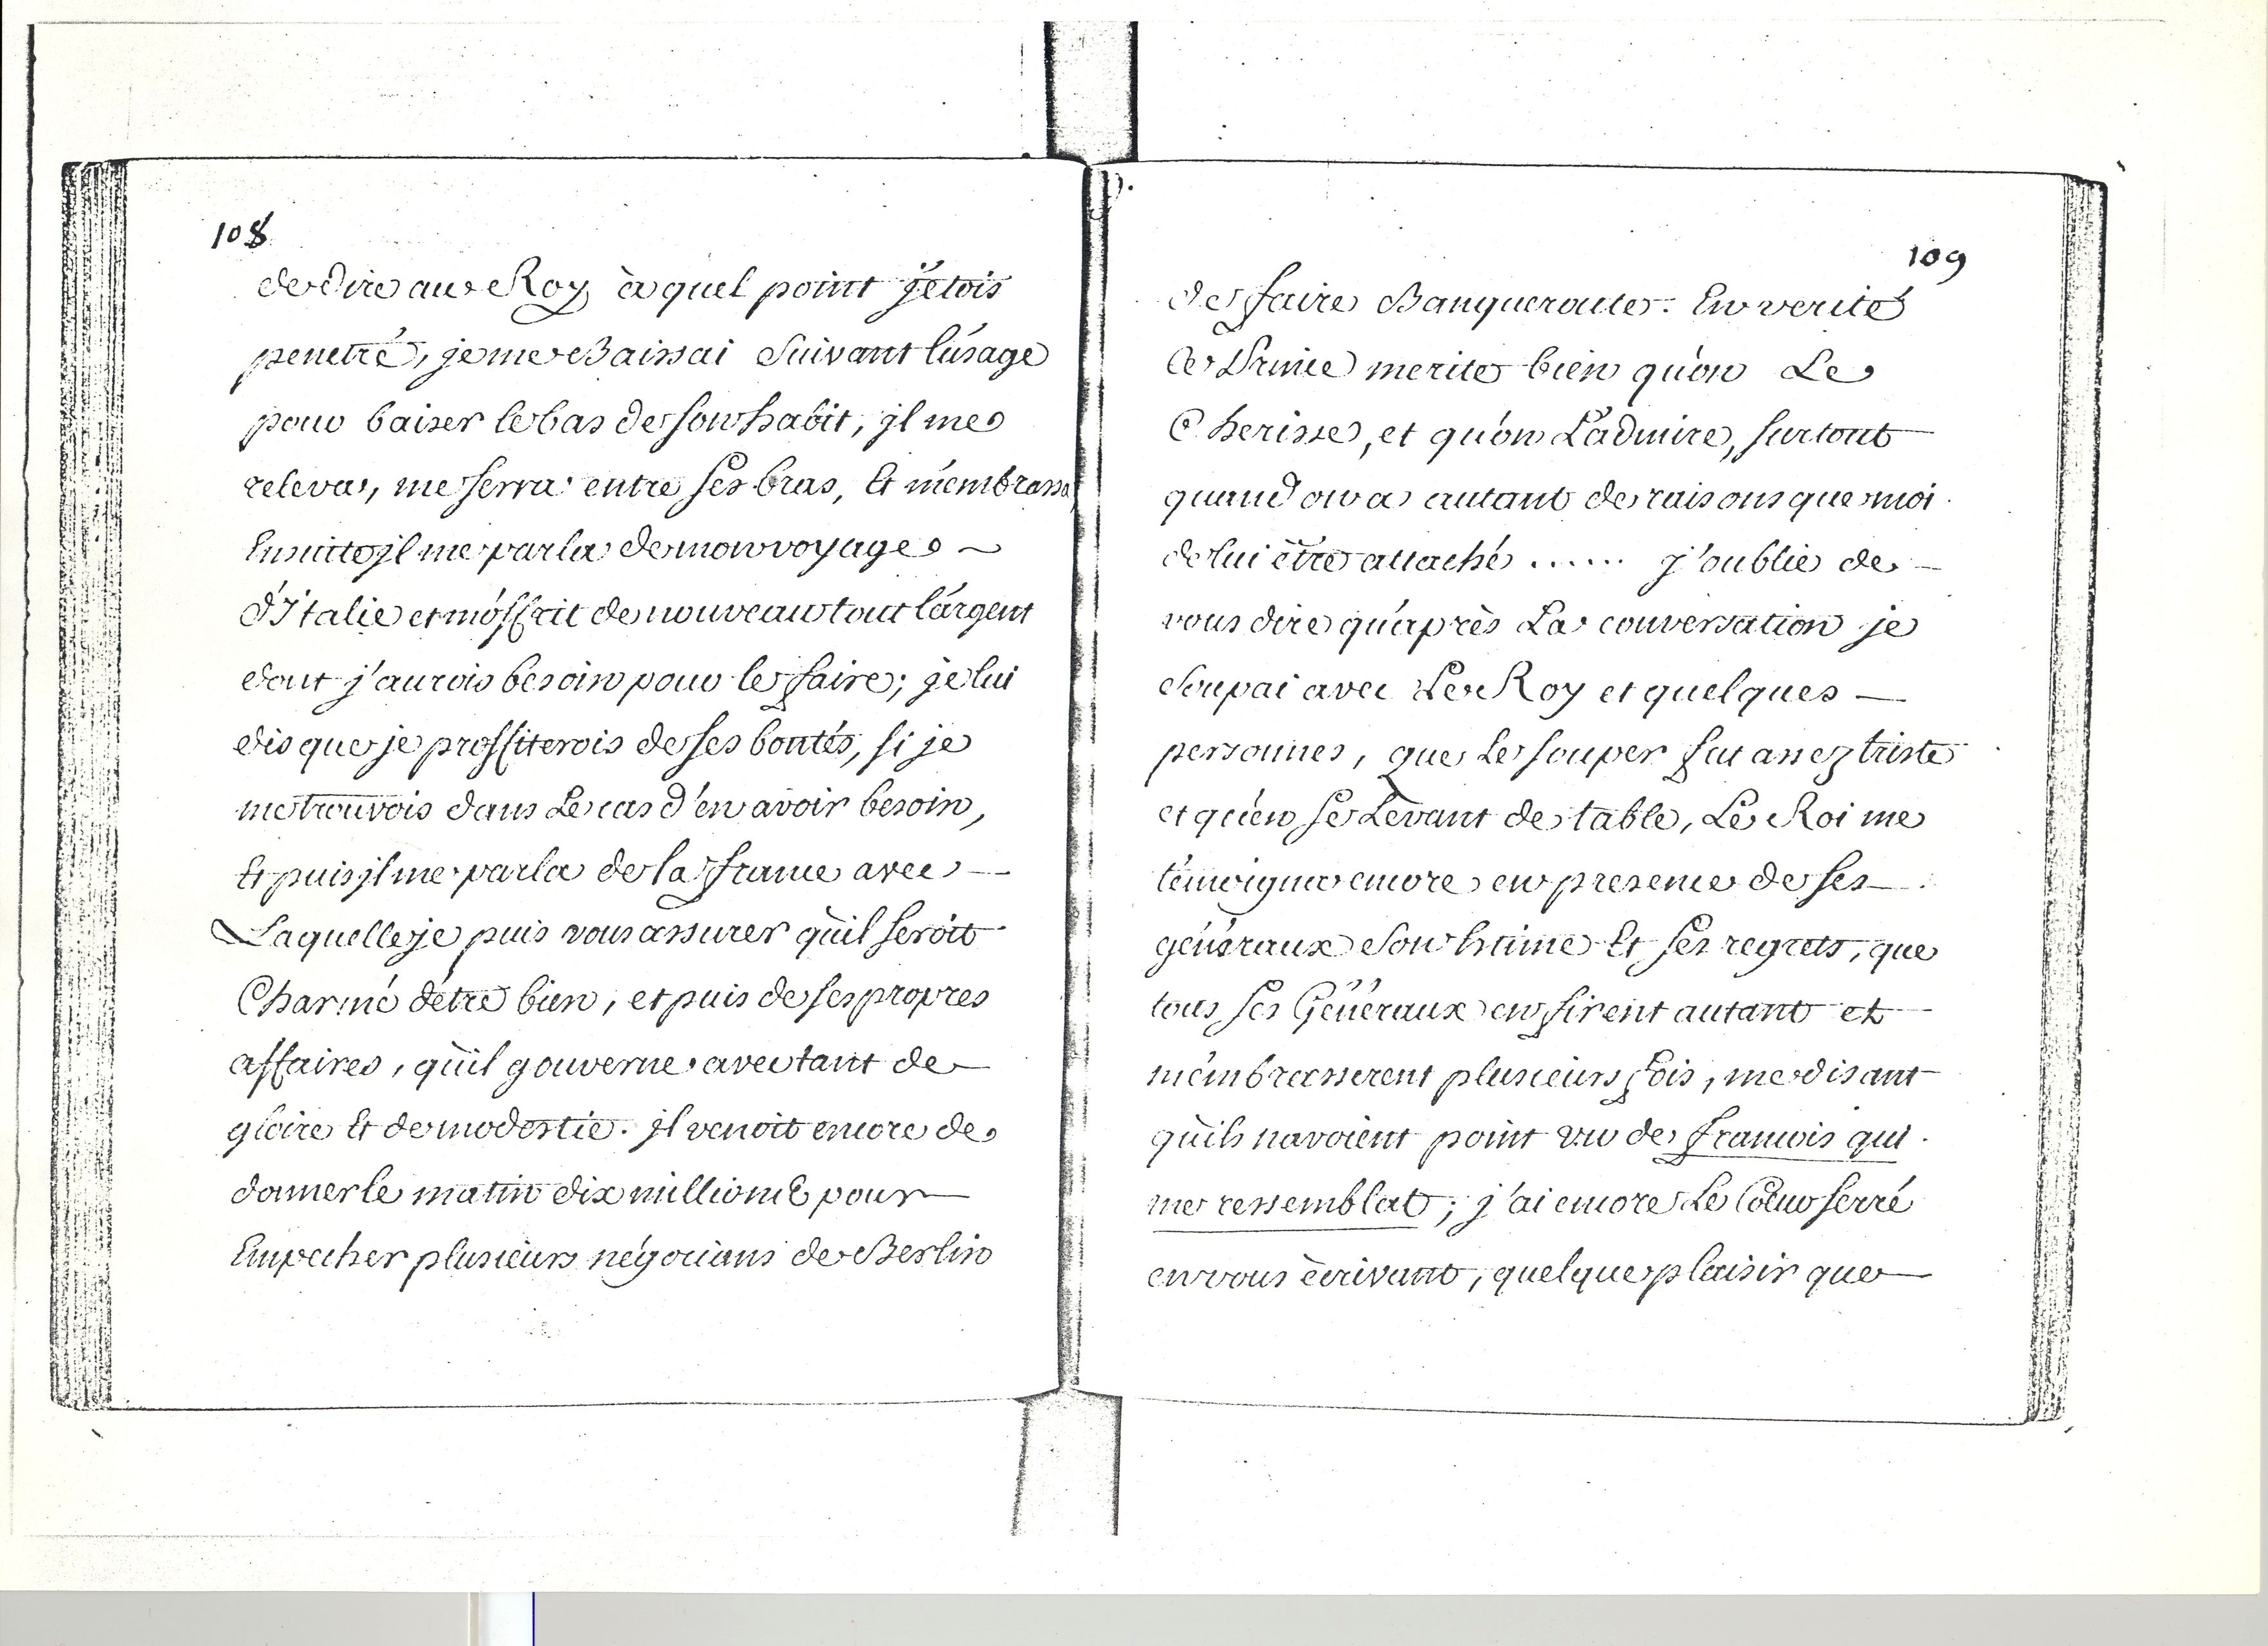 108
de dire au Roy à quel point j'etois
penetré, je me Baissai Suivant l'usage
pour baiser le bas de son habit, jl me
releva, me serra entre ses bras, Et m'embrassa,
Ensuitte jl me parla de mon voyage
d'Italie et m'offrit de nouveau tout l'argent
dont j'aurois besoin pour le faire; je lui
dis que je profiterois de ses bontés, si je
me trouvois dans Le cas d'en avoir besoin,
Et puis jl me parla de la france avec
Laquelle je puis vous assurer qu'il seroit
Charmé d'etre bien, et puis de ses propres
affaires, qu'il gouverne avec tant de
gloire Et de modestie. jl venoit encore de
donner le matin dix millions pour
Empecher plusieurs négocians de Berlin
109
de faire Banqueroute. En verité
Ce Prince merite bien qu'on Le
Cherisse, et qu'on L'admire, surtout
quand on a autant de raisons que moi
de lui être attaché ...... j'oublie de
vous dire qu'après La conversation je
Soupai avec Le Roy et quelques
personnes, que Le souper fut assez triste
et qu'en se Levant de table, Le Roi me
témoigna encore en presence de ses
généraux Son Estime Et ses regrets, que
tous ses Généraux en firent autant et
m'embrasserent plusieurs fois, me disant
qu'ils n'avoient point vu de francois qui
me ressemblat; j'ai encore Le Cœur serré
en vous écrivant, quelque plaisir que